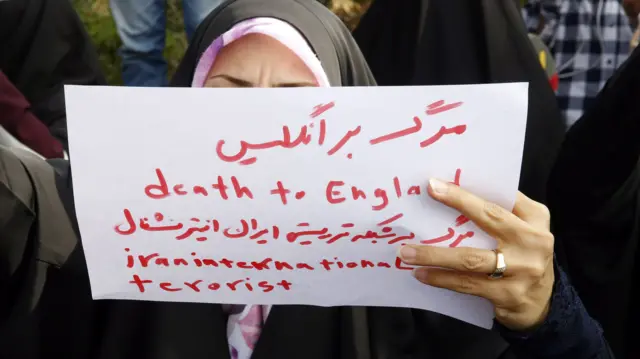 مرگ بر انگلیس
death to England
مرگ بر شبکه تریستی ایران اینترنشنال
iran international
terorist